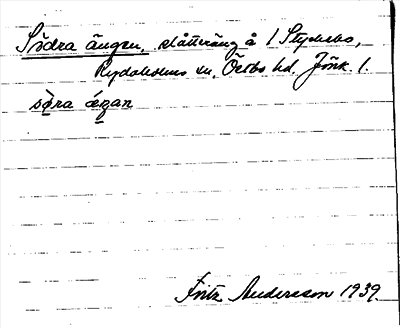 Södra ängen, slåtteräng å 1 Styvsbo,
Rydaholms sn, Östbo hd, Jönk. l.
sö̀ra ǽgan
Fritz Andersson 1939